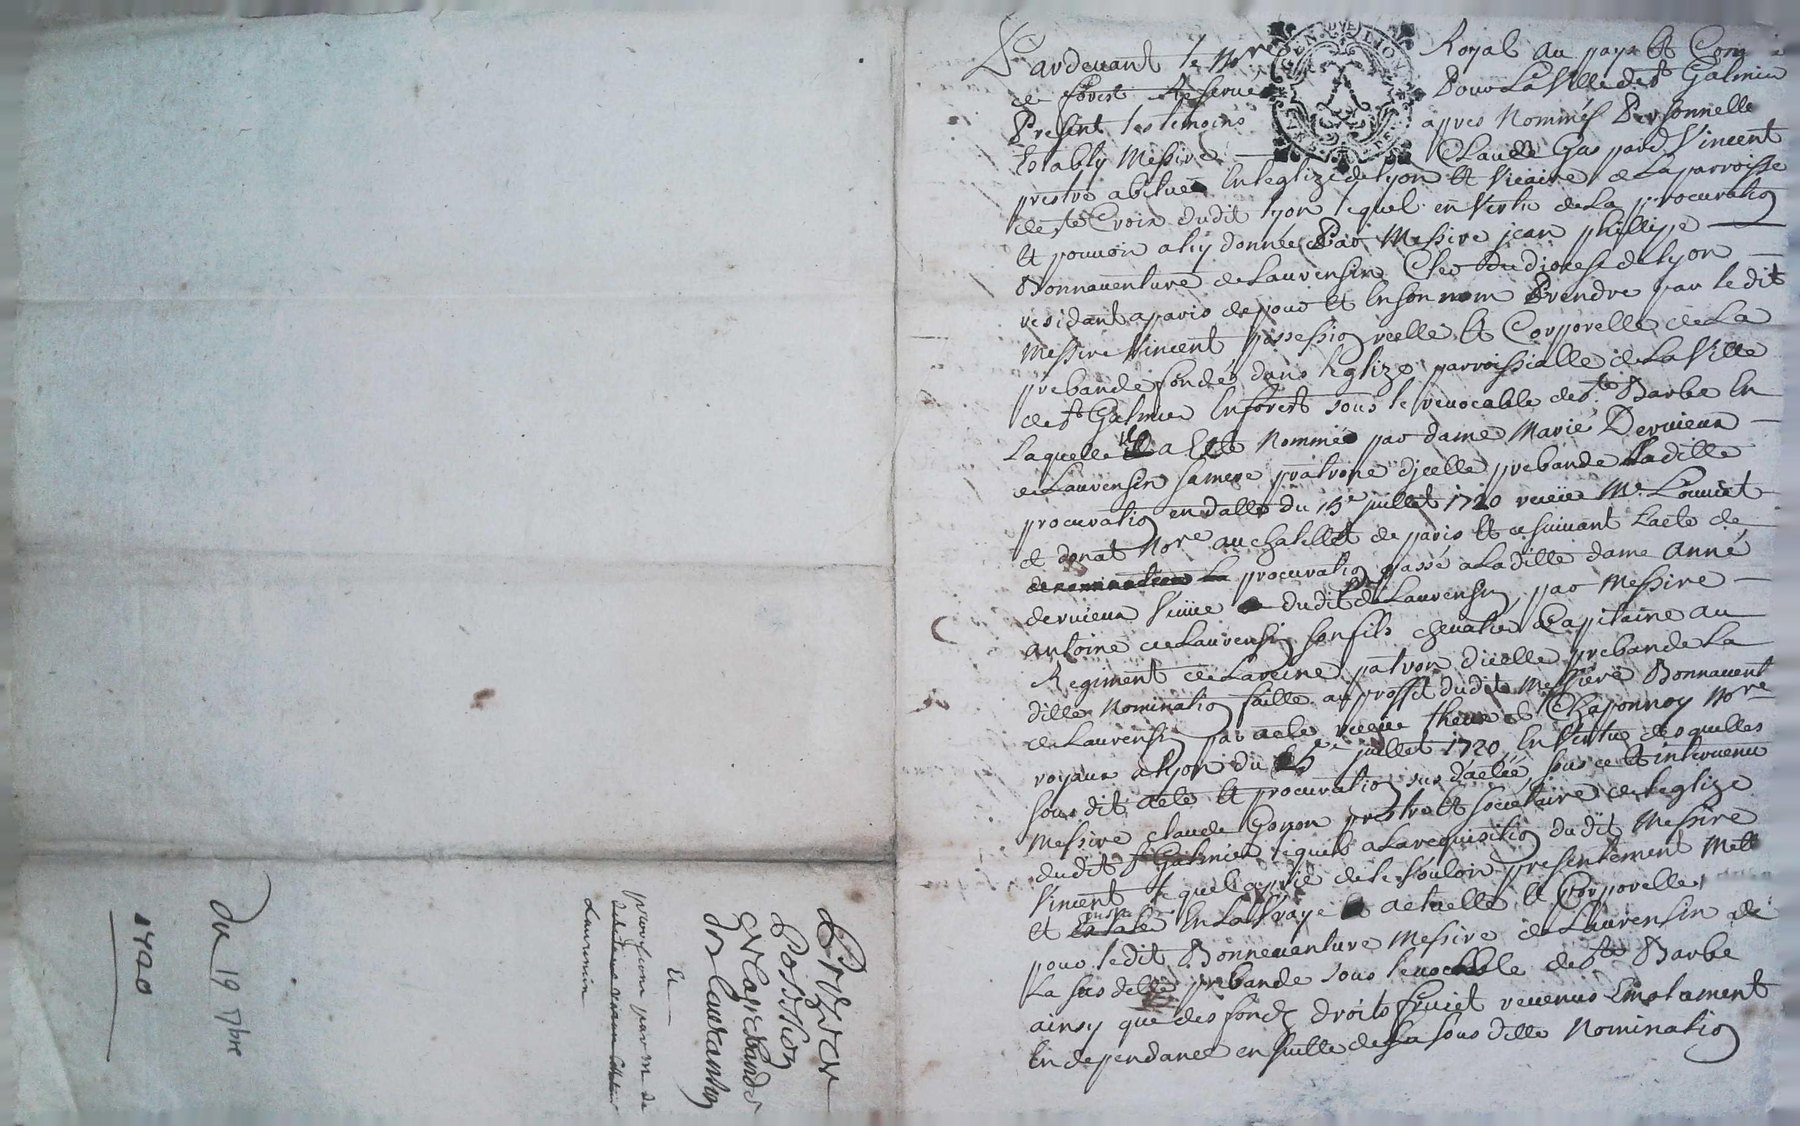 Pardevant le Nore Royal au pays et Comté
de forest Reservé Pour La Ville de St Galmier
Present les temoins appres Nommés Personnelle
Estably Messire Claude Gaspard Vincent
prestre abitué En leglize de lyon et Vicaire de La parroisse
de Ste Croix dudit lyon lequel en Vertu de La procuration
et pouvoir a luy donnée Par Messire jean phillipe
Bonnaventure de Laurensin Clerc du diocese de lyon
residant a paris de pour et En son nom Prendre par le dit
Messire Vincent possession reelle et Corporelle de La
prebande fondée dans lEglize parroissialle de La Ville
de St Galmier En forest sous le vocable de Ste Barbe En
Laquelle il a Esté Nommé par dame Marie Dervieux
de Laurensin sa mere patrone dicelle prebande Ladille
procuration en datte du 15e juillet 1720 receüe Me Louviet
et donat Nore au chatellet de paris et a suivant Lacte de
procuration passé a Ladille dame Anne
dervieux Veuve dudit de Laurensin par Messire
Antoine de Laurensin son fils chevalier Capitaine au
Regiment de La reine patron dicelle prebande La
dille Nomination faille au proffit dudit Messiere Bonnavent
de Laurensin par acte receue Chaponnoy Nore
royaux a lyon du juillet 1720 En Vertu desquelles
sous dit acte et procuration sus dactée, sus ce Et intervenu
Messire claude Gonon prestre et societaire de leglize
dudit St Galmier lequel a La requisition du dit Messire
Vincent lequel a prié de le Vouloir presentement Mettre
et En La Vraye actuelle et Corporelle
pour ledit Bonneventure Messire de Laurensin de
La sus dille prebande sous le vocable de Ste Barbe
ainsy que des fonds droits fruict revenus Emolument
En dependance en suille de La sous dille Nomination
Prizes
Possession
de La prebande
des Laurantin
Et
par m de
Laurensin
Du 19 7bre
1720